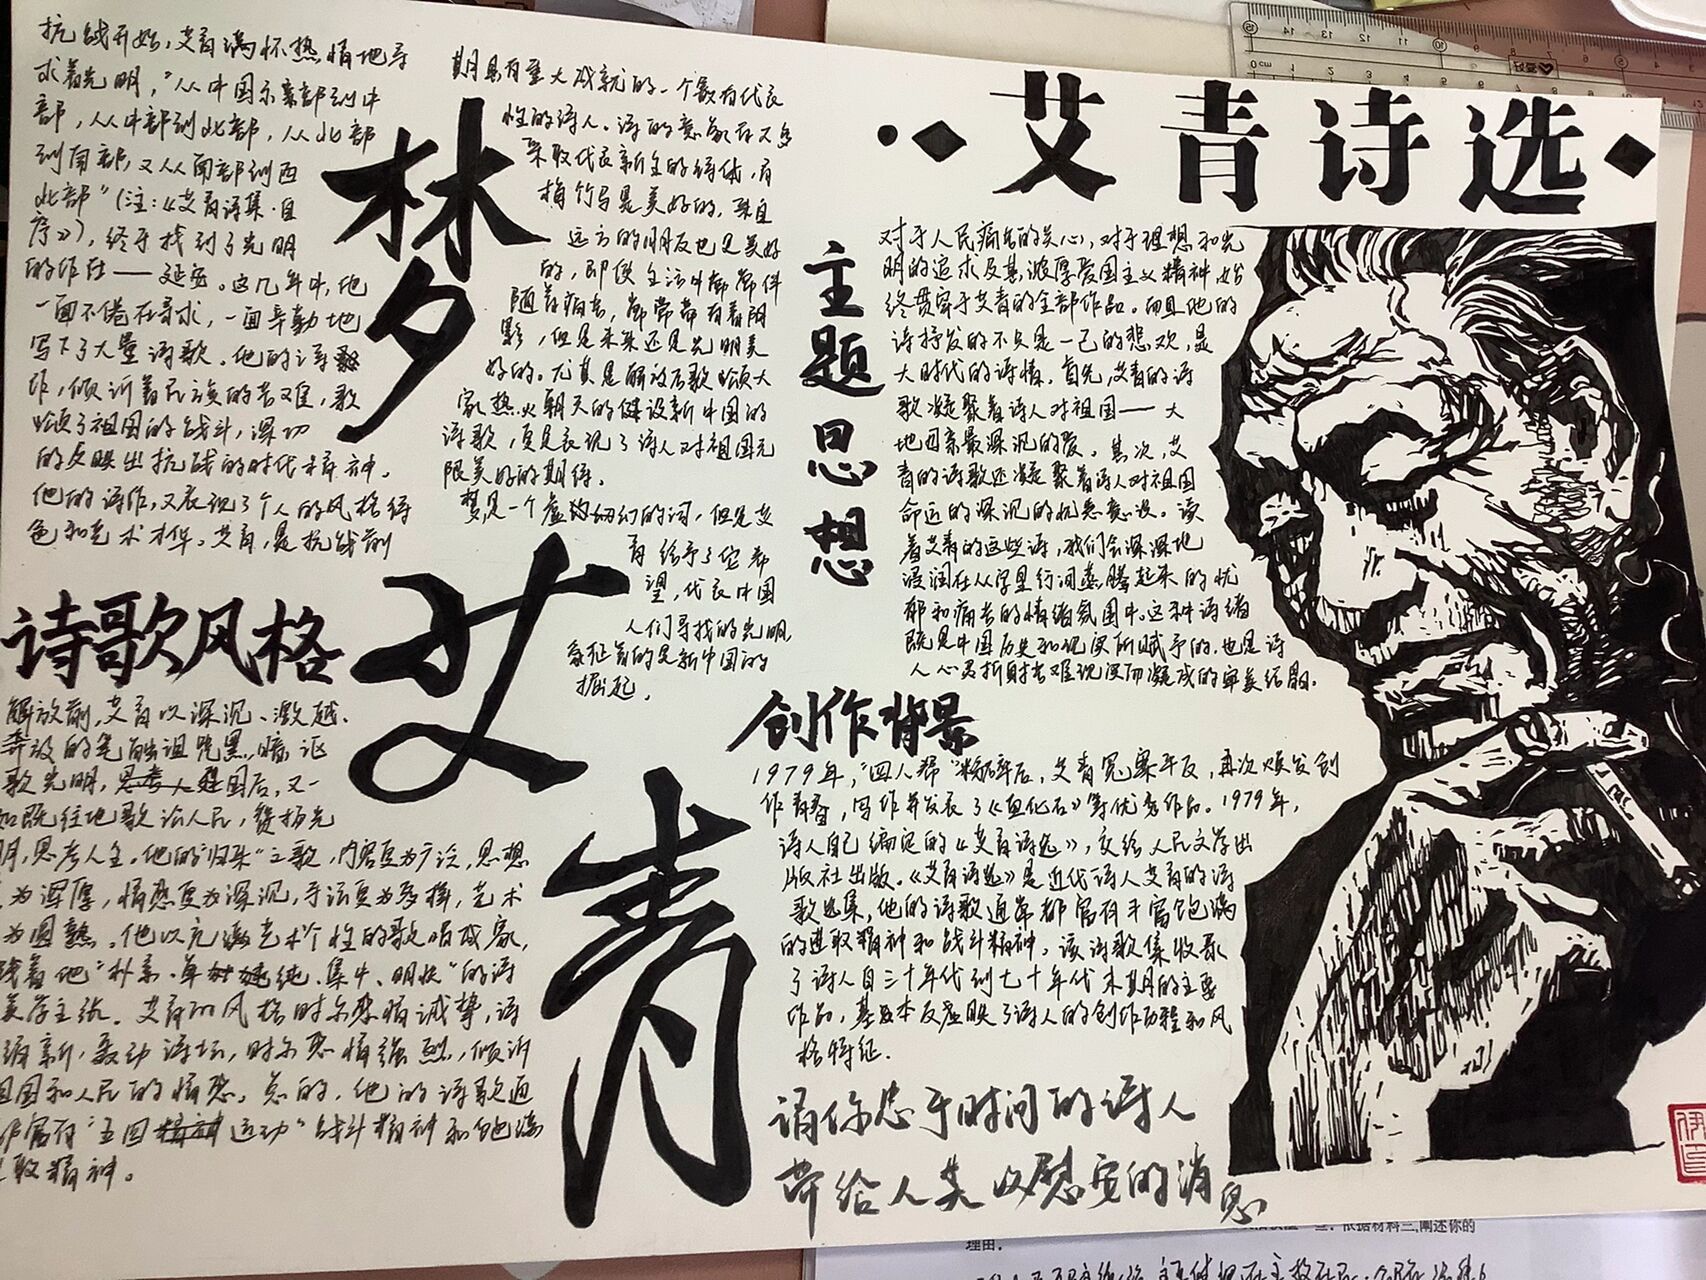 艾青诗选
抗战开始，艾青满怀热情地寻
求着光明，“从中国东部到中
部，从中部到北部，从北部
到南部，又从南部到西
北部”（注：《艾青诗集·自
序》），终于找到了光明
的所在——延安。这几年中，他
一面不倦在寻求，一面辛勤地
写下了大量诗歌。他的诗
作，倾诉着民族的苦难，歌
颂了祖国的战斗，深切
的反映出抗战的时代精神。
他的诗作，又表现了个人的风格特
色和艺术才华。艾青，是抗战前
期具有重大成就的一个最有代表
性的诗人。诗的意象在不多
采取代表新生的诗体，有
梅竹马是美好的，来自
远方的朋友也是美好
的，即使生活中常常伴
随着痛苦，常常带有着阴
影，但是未来还是光明美
好的。尤其是解放后歌颂大
家热火朝天的建设新中国的
诗歌，更是表现了诗人对祖国无
限美好的期待。
梦，是一个虚幻的词，但是艾
青给予了它希
望，代表中国
人们寻找的光明，
象征着的是新中国的
掘起。
梦
艾
青
诗歌风格
解放前，艾青以深沉、激越、
奔放的笔触诅咒黑暗，讴
歌光明，思考人建国后，又一
如既往地歌讼人民，赞扬光
明，思考人生。他的“归来”之歌，内容更为广泛，思想
为浑厚，情感更为深沉，手法更为多样，艺术
为圆熟。他以充满艺术个性的歌唱成家，
践着他“朴素、单纯、集中、明快”的诗
美学主张。艾青的风格时尔悲情诚挚，诗
清新，轰动诗坛，时尔感情强烈，倾诉
祖国和人民的情感。总的，他的诗歌通
常富有“五四运动”战斗精神和饱满
取精神。
主题思想
对于人民痛苦的关心，对于理想和光
明的追求及其浓厚爱国主义精神始
终贯穿于艾青的全部作品。而且他的
诗抒发的不只是一己的悲欢，是
大时代的诗情。首先，艾青的诗
歌凝聚着诗人对祖国——大
地母亲最深沉的爱。其次，艾
青的诗歌还凝聚着诗人对祖国
命运的深沉的忧患意识。读
着艾青的这些诗，我们会深深地
浸润在从字里行间蒸腾起来的忧
郁和痛苦的情绪氛围中。这种诗绪
既是中国历史和现实所赋予的，也是诗
人心灵折射苦难现实而凝成的审美结晶。
创作背景
1979年，“四人帮”粉碎后，艾青冤案平反，再次焕发创
作青春，写作并发表了《鱼化石》等优秀作品。1979年，
诗人自己编定的《艾青诗选》，交给人民文学出
版社出版。《艾青诗选》是近代诗人艾青的诗
歌选集，他的诗歌通常都富有丰富饱满
的进取精神和战斗精神，该诗歌集收录
了诗人自三十年代到七十年代末期的主要
作品，基本反映了诗人的创作历程和风
格特征.
请你忠于时间的诗人
带给人类以慰安的消息
依据材料三，阐述你的
理由。